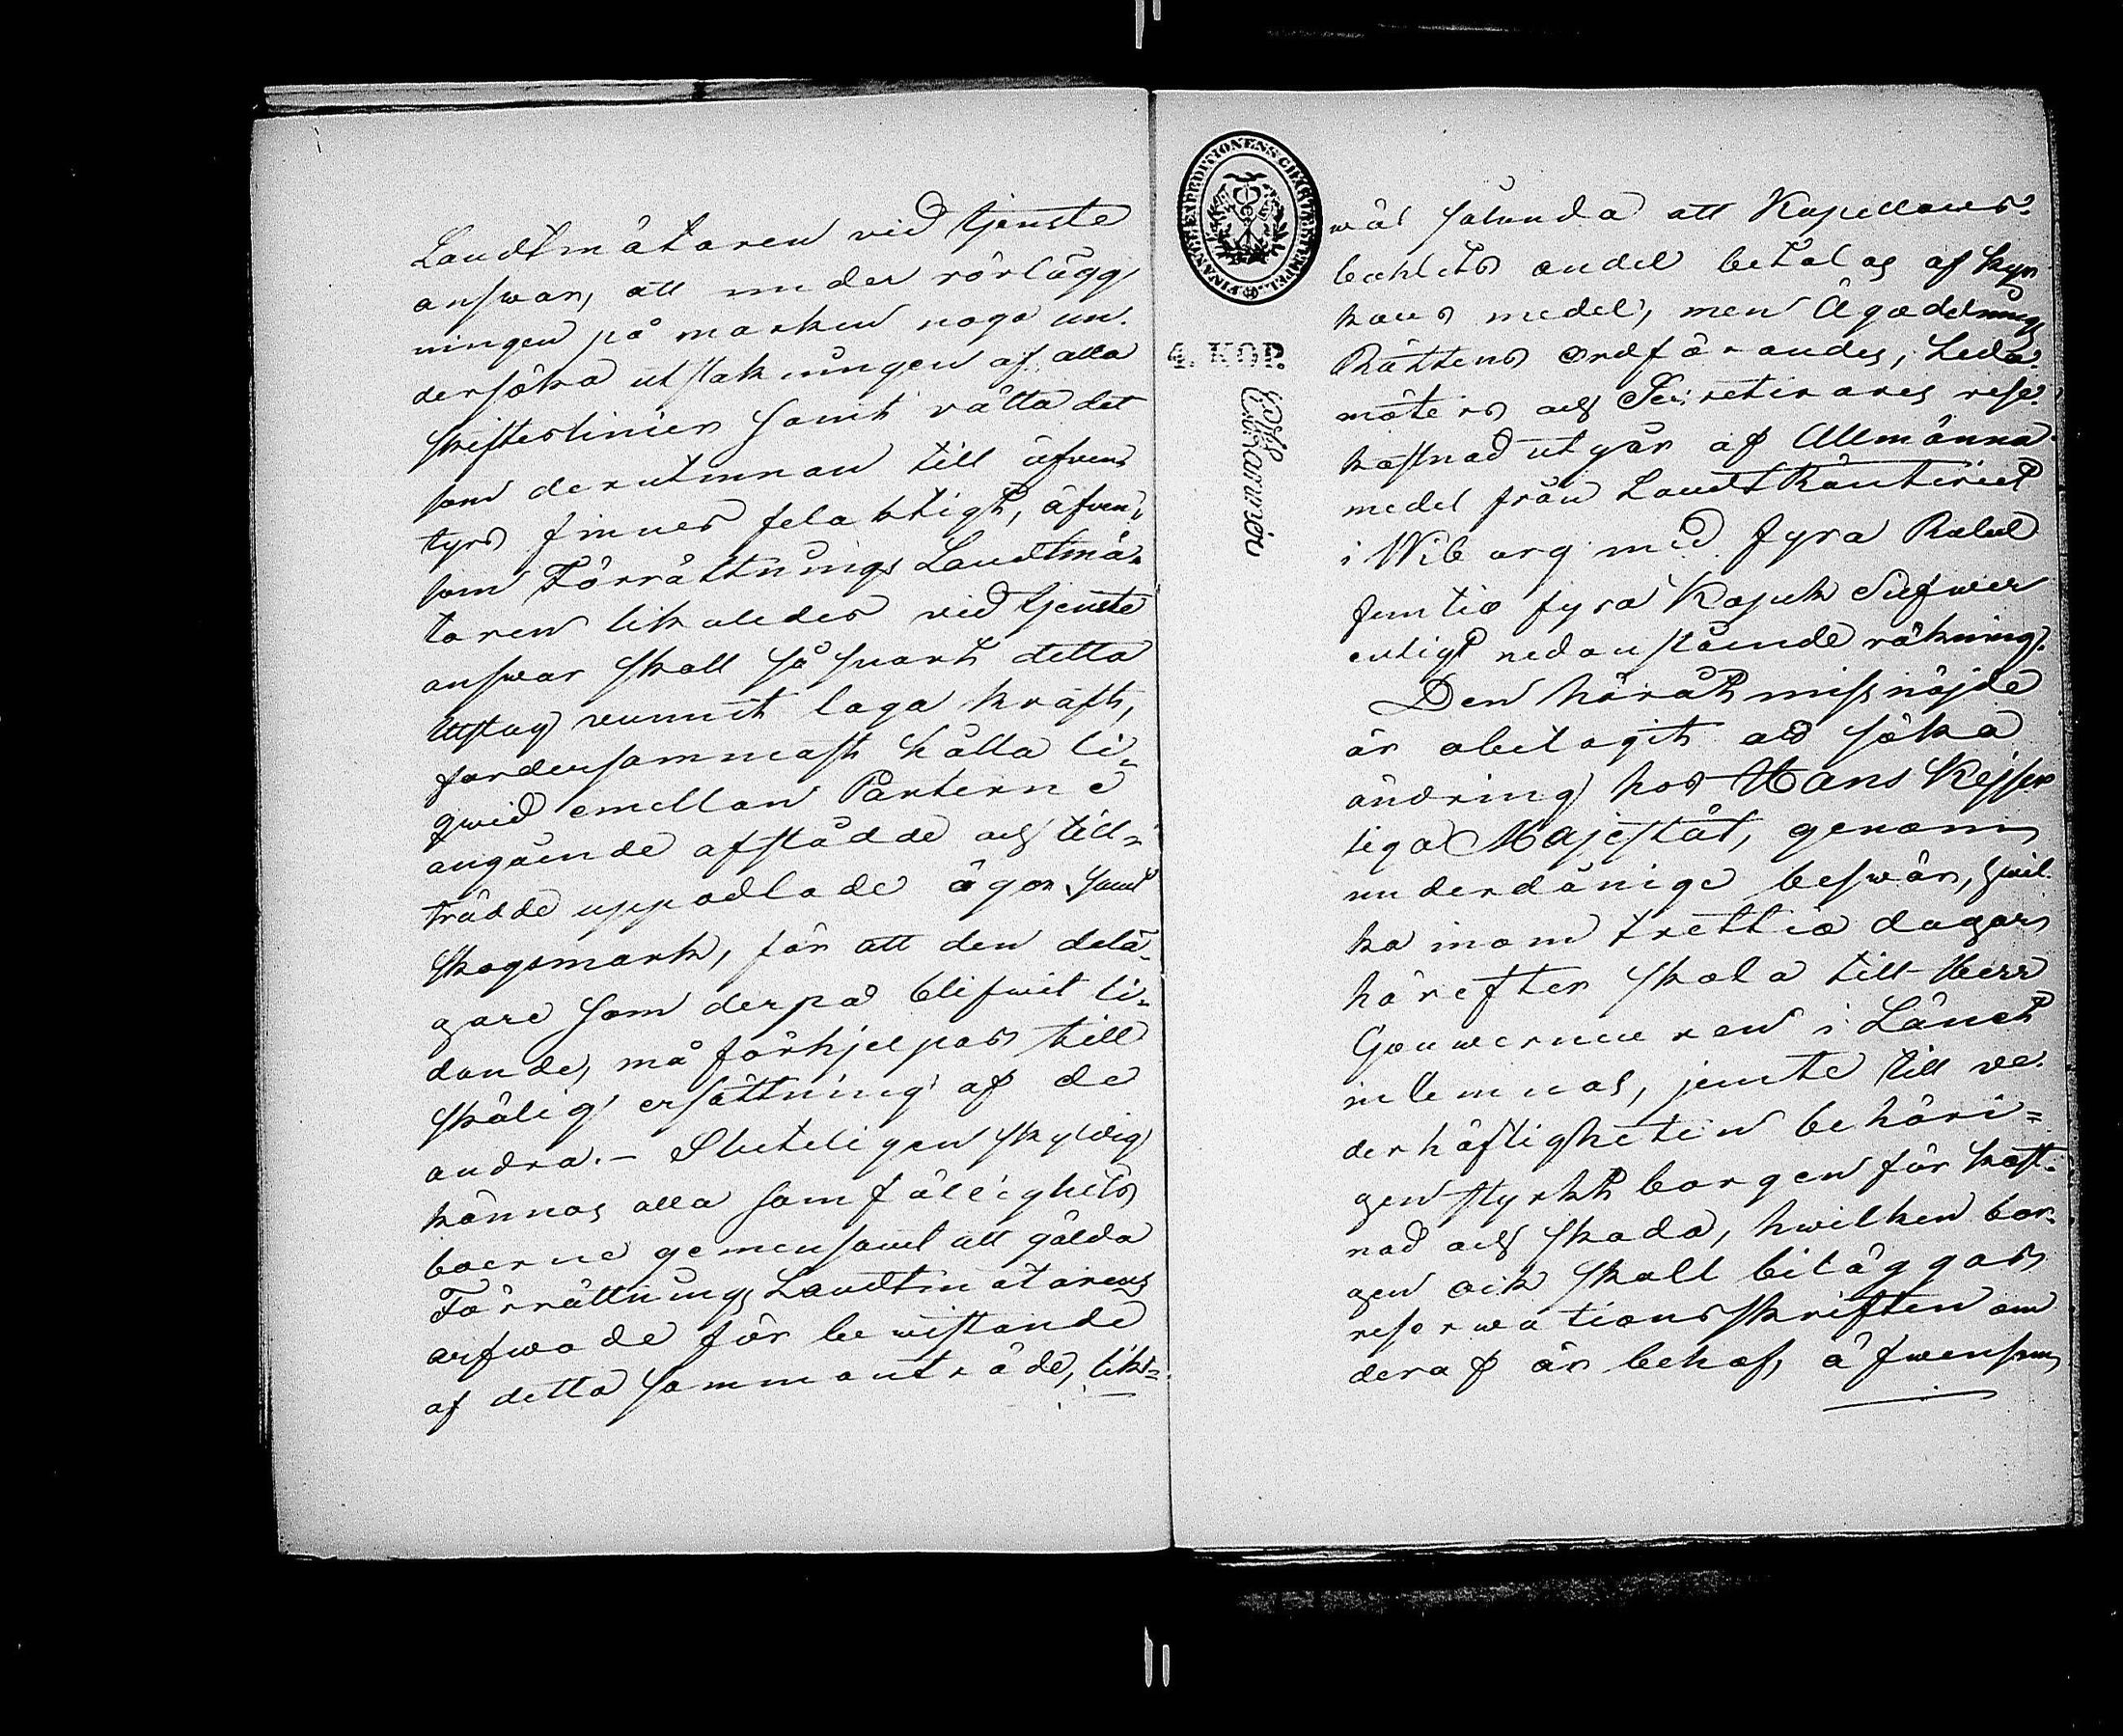 Landtmätaren vid tjenste
answar, att under rörlägg,
ningen på marken noga un-
dersöka utstakningen af alla
skifteslinier samt rätta det
som derutinnan till äfwen
tyrs finnes felaktigt, äfwen-
som Förrättnings Landtmä-
taren likaledes vid tjenste
answar skall så snart detta
Utslag vunnit laga kraft,
fordersammast hålla li-
qwid emellan Parterne
angående afstådde och till-
trädde uppodlade ägor samt
skogsmark, för att den delä-
gare som derpå blifwit li-
dande, må förhjelpas till
skälig ersättning af de
andra. - Sluteligen skyldig
kännas alla samfälighets
boerne gemensamt att gälda
Förrättnings Landtmätarens
arfwode för bewistande
af detta sammanträde, lik-
FINANCE EXPEDITIONENS CHARTÆSTEMPEL
4. KOP.
wäl sålunda att Kapellans-
bohlets andel betalas af Kyr
kans medel, men Ägodelnings
Rättens Ordförandes, Leda-
möters och Secreterares rese-
kostnad utgår af Allmänna
medel från Landt Ränteriet
i Wiborg med fyra Rubel
femtio fyra Kopek Silfwer
enligt nedanstående räkning.
Den häråt missnöjde
är obetagit att söka
ändring hos Hans Kejser
liga Majestät, genom
underdånige beswär, hwil-
ka inom trettio dagar
härefter skola till Herr
Gouverneuren i Länet
inlemnas, jemte till ve-
derhäftigheten behöri-
gen styrkt borgen för kost-
nad och skada, hwilken bor-
gen ock skall biläggas
reservationsskriften om
deraf är behof, äfwensom